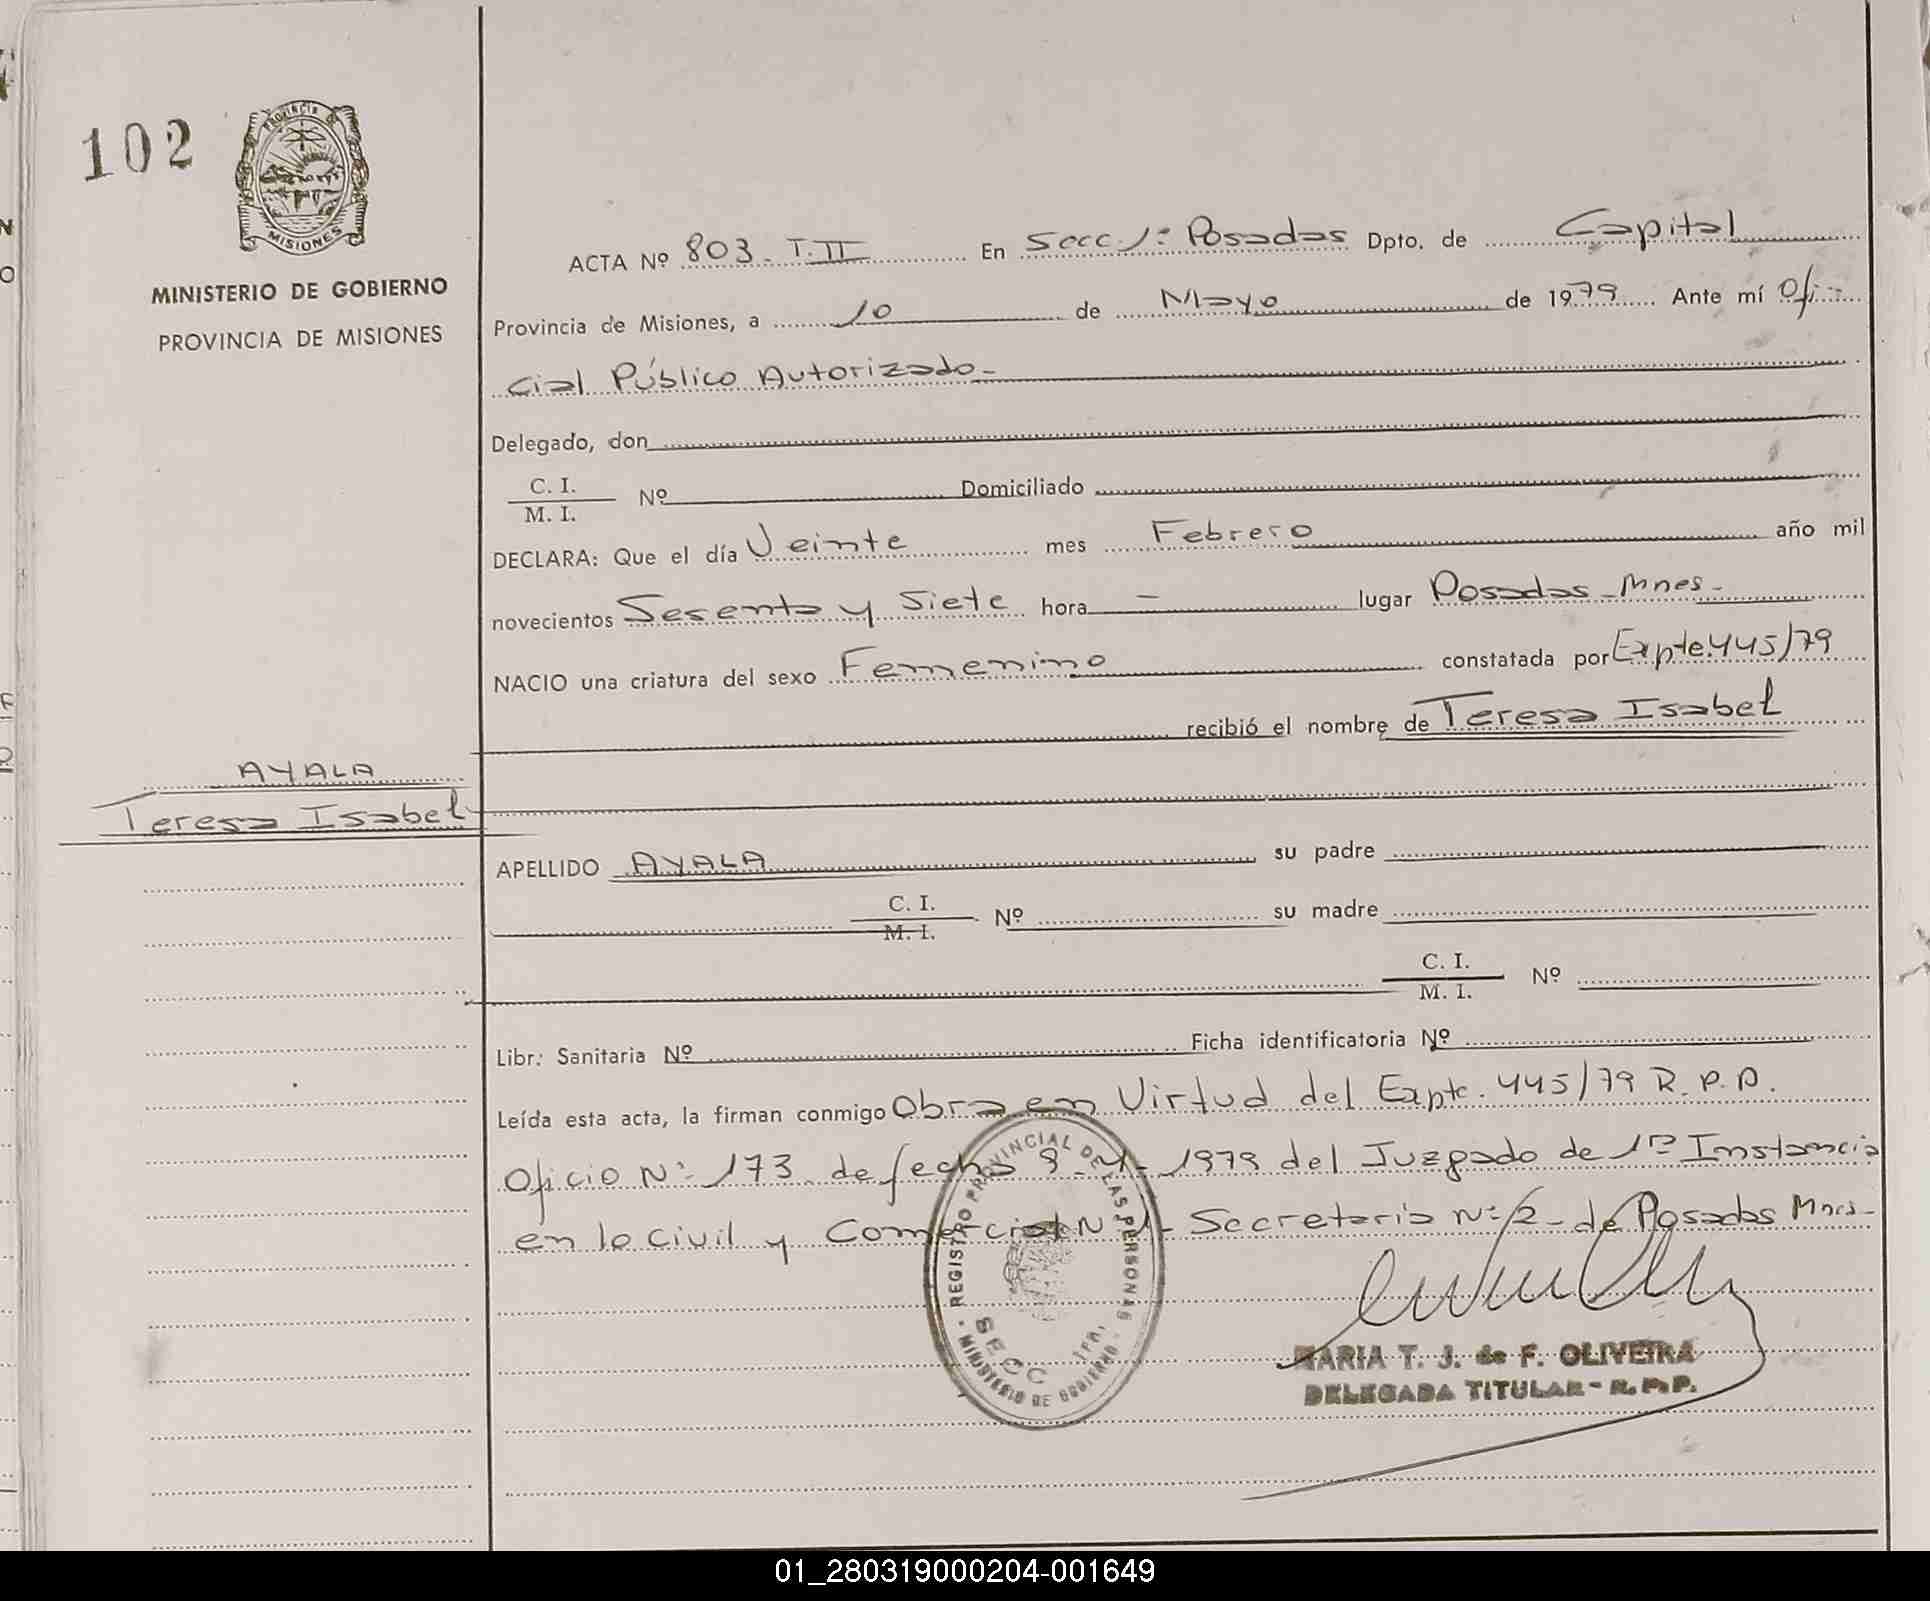 102
PROVINCIA DE
MISIONES
MINISTERIO DE GOBIERNO
PROVINCIA DE MISIONES
AYALA
Teresa Isabel
ACTA Nº 803 - T. II En Secc 1ª Posadas Dpto. de Capital
Provincia de Misiones, a 10 de Mayo de 1979 Ante mí Ofi-
cial Público Autorizado-
Delegado, don
C. I.
M. I.
Nº Domiciliado
DECLARA: Que el día Veinte mes Febrero año mil
novecientos Sesenta y Siete hora — lugar Posadas Mnes-
NACIO una criatura del sexo Femenino constatada por Expte. 445/79
recibió el nombre de Teresa Isabel
APELLIDO AYALA su padre
C. I.
M. I.
Nº su madre
C. I.
M. I.
Nº
Libr. Sanitaria Nº Ficha identificatoria Nº
Leída esta acta, la firman conmigo Obra en Virtud del Expte. 445/79 R.P.P.
Oficio Nº 173 de fecha 1979 del Juzgado de 1ra Instancia
en lo Civil y Comercial Nº 1- Secretaria Nº 2 - de Posadas Mnes-
REGISTRO PROVINCIAL DE LAS PERSONAS
MINISTERIO DE GOBIERNO
SECC 1RA.
MARIA T. J. de F. OLIVEIRA
DELEGADA TITULAR - R. P. P.
01_280319000204-001649